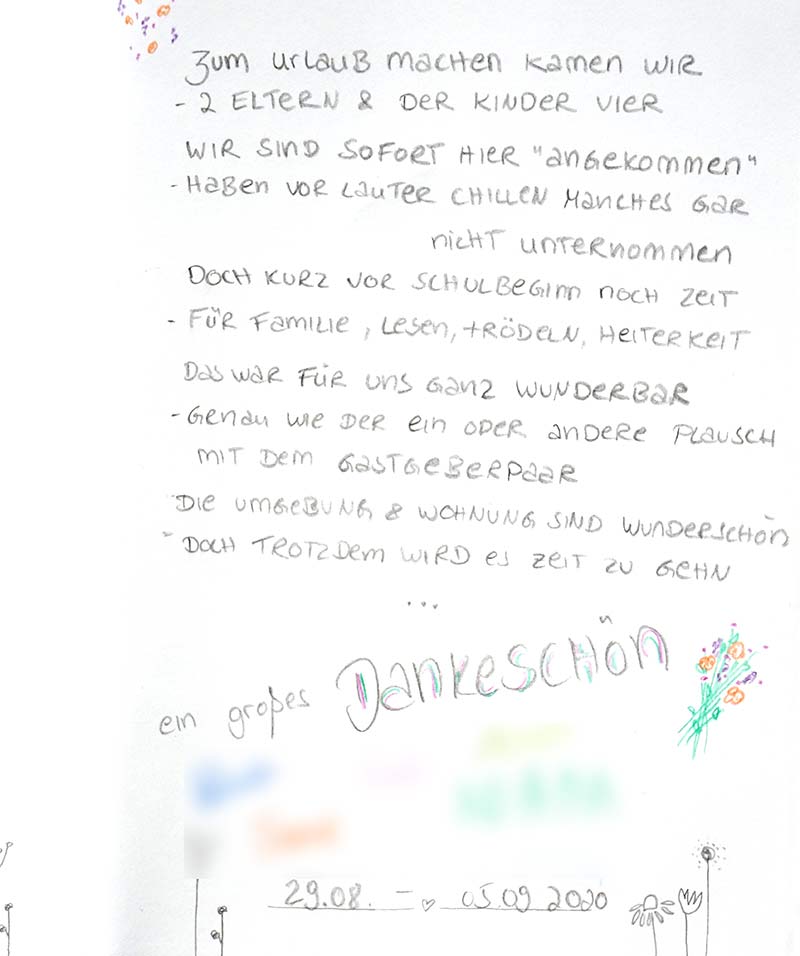 Zum Urlaub machen kamen wir
- 2 Eltern & der Kinder vier
Wir sind sofort hier "angekommen"
- Haben vor lauter chillen manches gar
nicht unternommen
Doch kurz vor Schulbeginn noch Zeit
- Für Familie, Lesen, trödeln, Heiterkeit
Das war für uns ganz wunderbar
- Genau wie der ein oder andere Plausch
mit dem Gastgeberpaar
Die Umgebung & Wohnung sind wunderschön
- Doch trotzdem wird es Zeit zu gehn
...
ein großes Dankeschön
29.08. - 05.09 2020